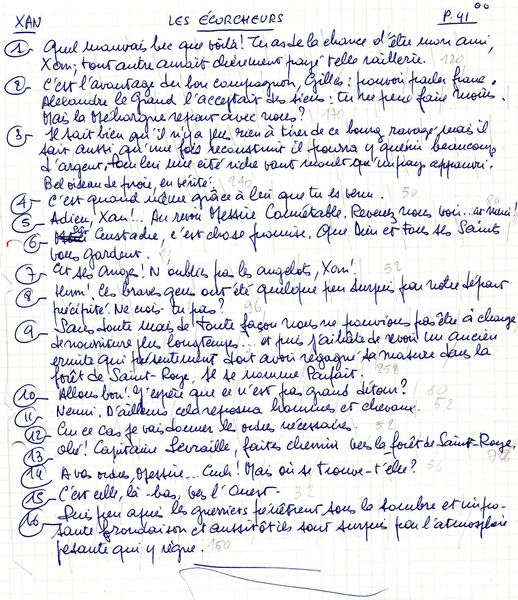 XAN LES ÉCORCHEURS P.41
1 Quel mauvais bec que voilà! Tu as de la chance d'être mon ami,
Xan; tout autre aurait chèrement payé telle raillerie. 120
2 C'est l'avantage du bon compagnon, Gilles: pouvoir parler franc.
Alexandre le Grand l'acceptait des siens: tu ne peux faire moins.
Mais la Mehorgne repart avec nous? 170
3 Il sait bien qu'il n'y a plus rien à tirer de ce bourg ravagé mais il
sait aussi qu'une fois reconstruit il pourra y quérir beaucoup
d'argent, car une cité riche vaut mieux qu'un pays appauvri.
Bel oiseau de proie, en vérité. 240
4 C'est quand même grâce à lui que tu es venu. 50
5 Adieu, Xan!.. Au revoir Messire Connétable. Revenez nous voir... et merci!
6 Eustache, c'est chose promise. Que Dieu et tous ses Saints
vous gardent.
7 Et ses Anges! N'oublies pas les angelots, Xan! 52
8 Hum! Ces braves gens ont été quelque peu surpris par notre départ
précipité. Ne crois-tu pas? 96
9 Sans doute mais de toute façon nous ne pouvions pas être à charge
de nourriture plus longtemps... et puis j'ai hâte de revoir un ancien
ermite qui présentement doit avoir regagné sa masure dans la
forêt de Saint-Roye. Il se nomme Parfait. 252
10 Allons bon! J'espère que ce n'est pas grand détour? 60
11 Nenni. D'ailleurs cela reposera hommes et chevaux. 52
12 En ce cas je vais donner les ordres nécessaires. 52
13 Ohé! Capitaine Levraille, faites chemin vers la forêt de Saint-Roye.
14 A vos ordres, Messire... Euh! Mais où se trouve-t'elle? 56
15 C'est elle, là-bas, vers l'Ouest. 32
16 Puis peu après les guerriers pénètrent sous la sombre et impo-
sante frondaison et aussitôt ils sont surpris par l'atmosphère
pesante qui y règne. 160